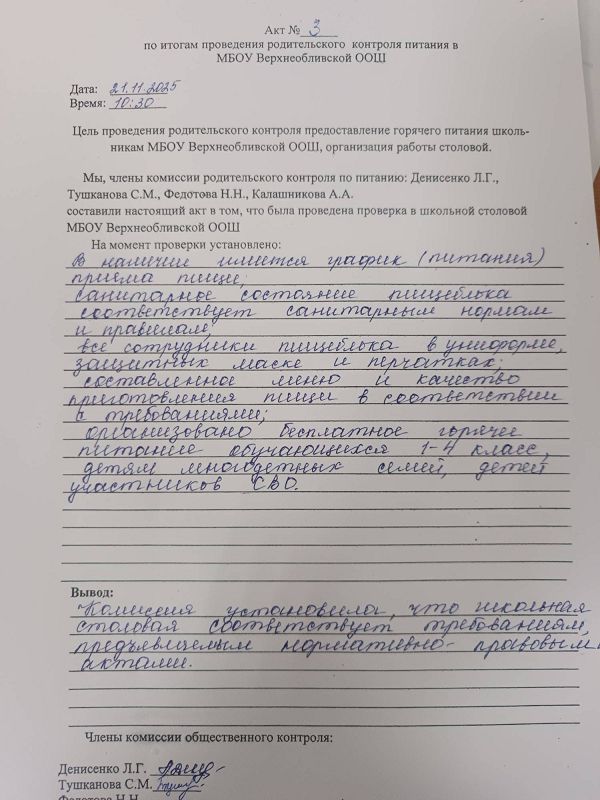 Акт № 3
по итогам проведения родительского контроля питания в
МБОУ Верхнеобливской ООШ
Дата: 21.11.2025
Время: 10:30
Цель проведения родительского контроля предоставление горячего питания школь-
никам МБОУ Верхнеобливской ООШ, организация работы столовой.
Мы, члены комиссии родительского контроля по питанию: Денисенко Л.Г.,
Тушканова С.М., Федотова Н.Н., Калашникова А.А.
составили настоящий акт в том, что была проведена проверка в школьной столовой
МБОУ Верхнеобливской ООШ
На момент проверки установлено:
В наличие имеется график (питания)
приема пищи;
санитарное состояние пищеблока
соответствует санитарным нормам
и правилам;
все сотрудники пищеблока в униформе,
защитных маске и перчатках;
составленное меню и качество
приготовления пищи в соответствии
с требованиями;
организовано бесплатное горячее
питание обучающихся 1-4 класс,
детям многодетных семей, детей
участников СВО.
Вывод:
Комиссия установила, что школьная
столовая соответствует требованиям,
предъявляемым нормативно-правовым
актами.
Члены комиссии общественного контроля:
Денисенко Л.Г.
Тушканова С.М.
Федотова Н.Н.